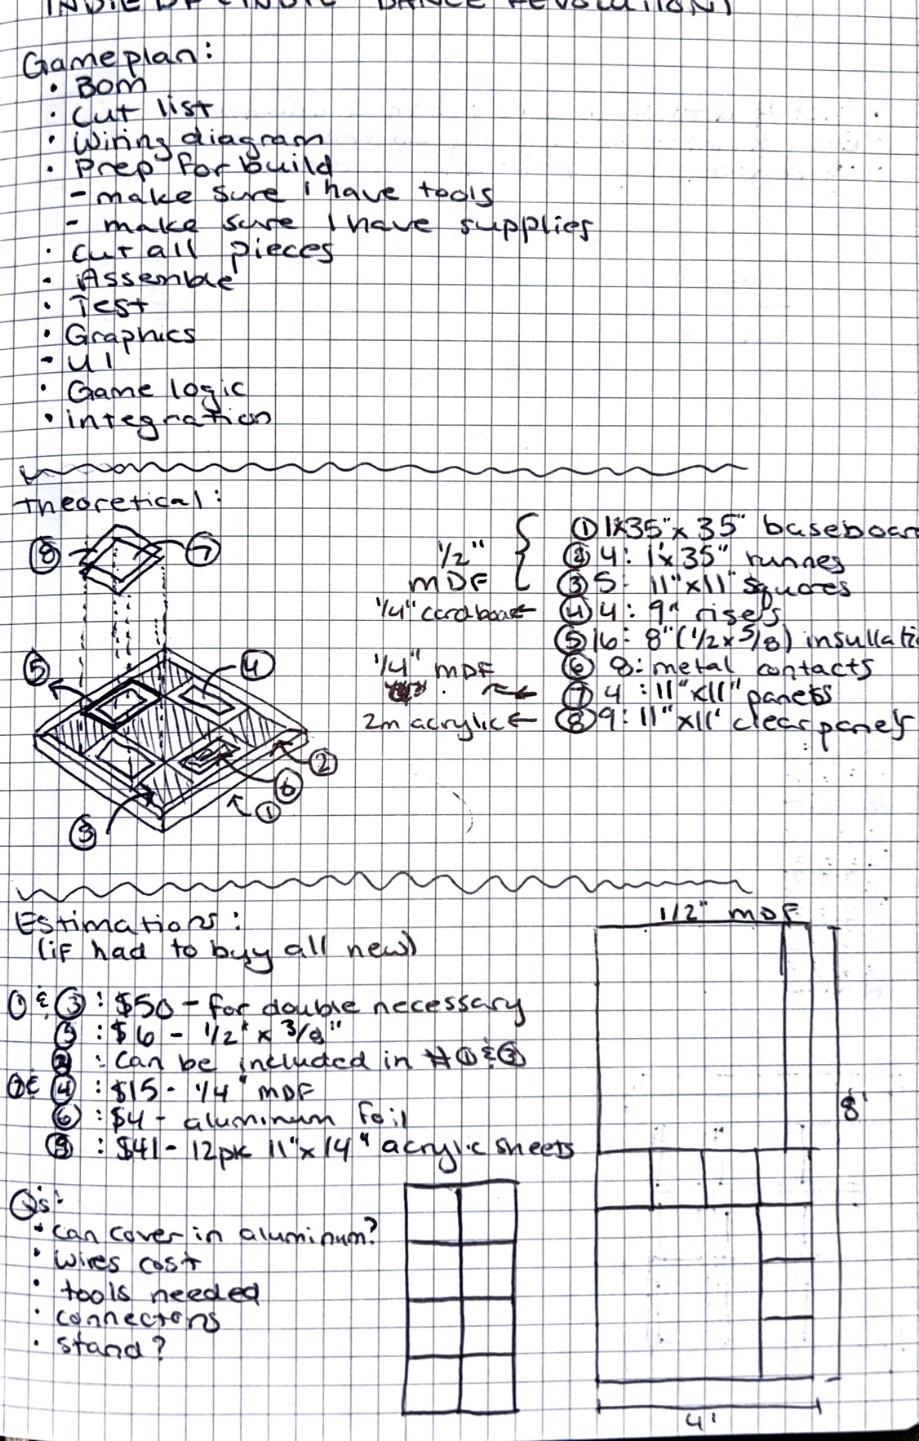 INDIE DDR (INDIE DANCE REVOLUTION)
Gameplan:
• BOM
• Cut list
• Wiring diagram
• Prep for build
- make sure I have tools
- make sure I have supplies
• Cut all pieces
• Assemble
• Test
• Graphics
• UI
• Game logic
• integration
Theoretical:
1/2" MDF
① 1x35" x 35" baseboar
② 4: 1x35" runnes
③ 5: 11"x11" squares
1/4" cardboar ← ④ 4: 9" risers
⑤ 16: 8" (1/2 x 5/8) insullati
⑥ 8: metal contacts
1/4" MDF ← ⑦ 4: 11"x11" panels
2m acrylic ← ⑧ 9: 11"x11" clear panels
⑧ ⑦
⑤ ④
② ⑥ ① ③
Estimations:
(if had to buy all new)
① & ③: $50 - for double necessary
⑤: $6 - 1/2" x 3/8"
②: can be included in #① & ③
⑦ & ④: $15 - 1/4" MDF
⑥: $4 - aluminum foil
⑧: $41 - 12pk 11"x14" acrylic sheets
Q's:
• can cover in aluminum?
• wires cost
• tools needed
• connectors
• stand?
1/2" MDF
8'
4'